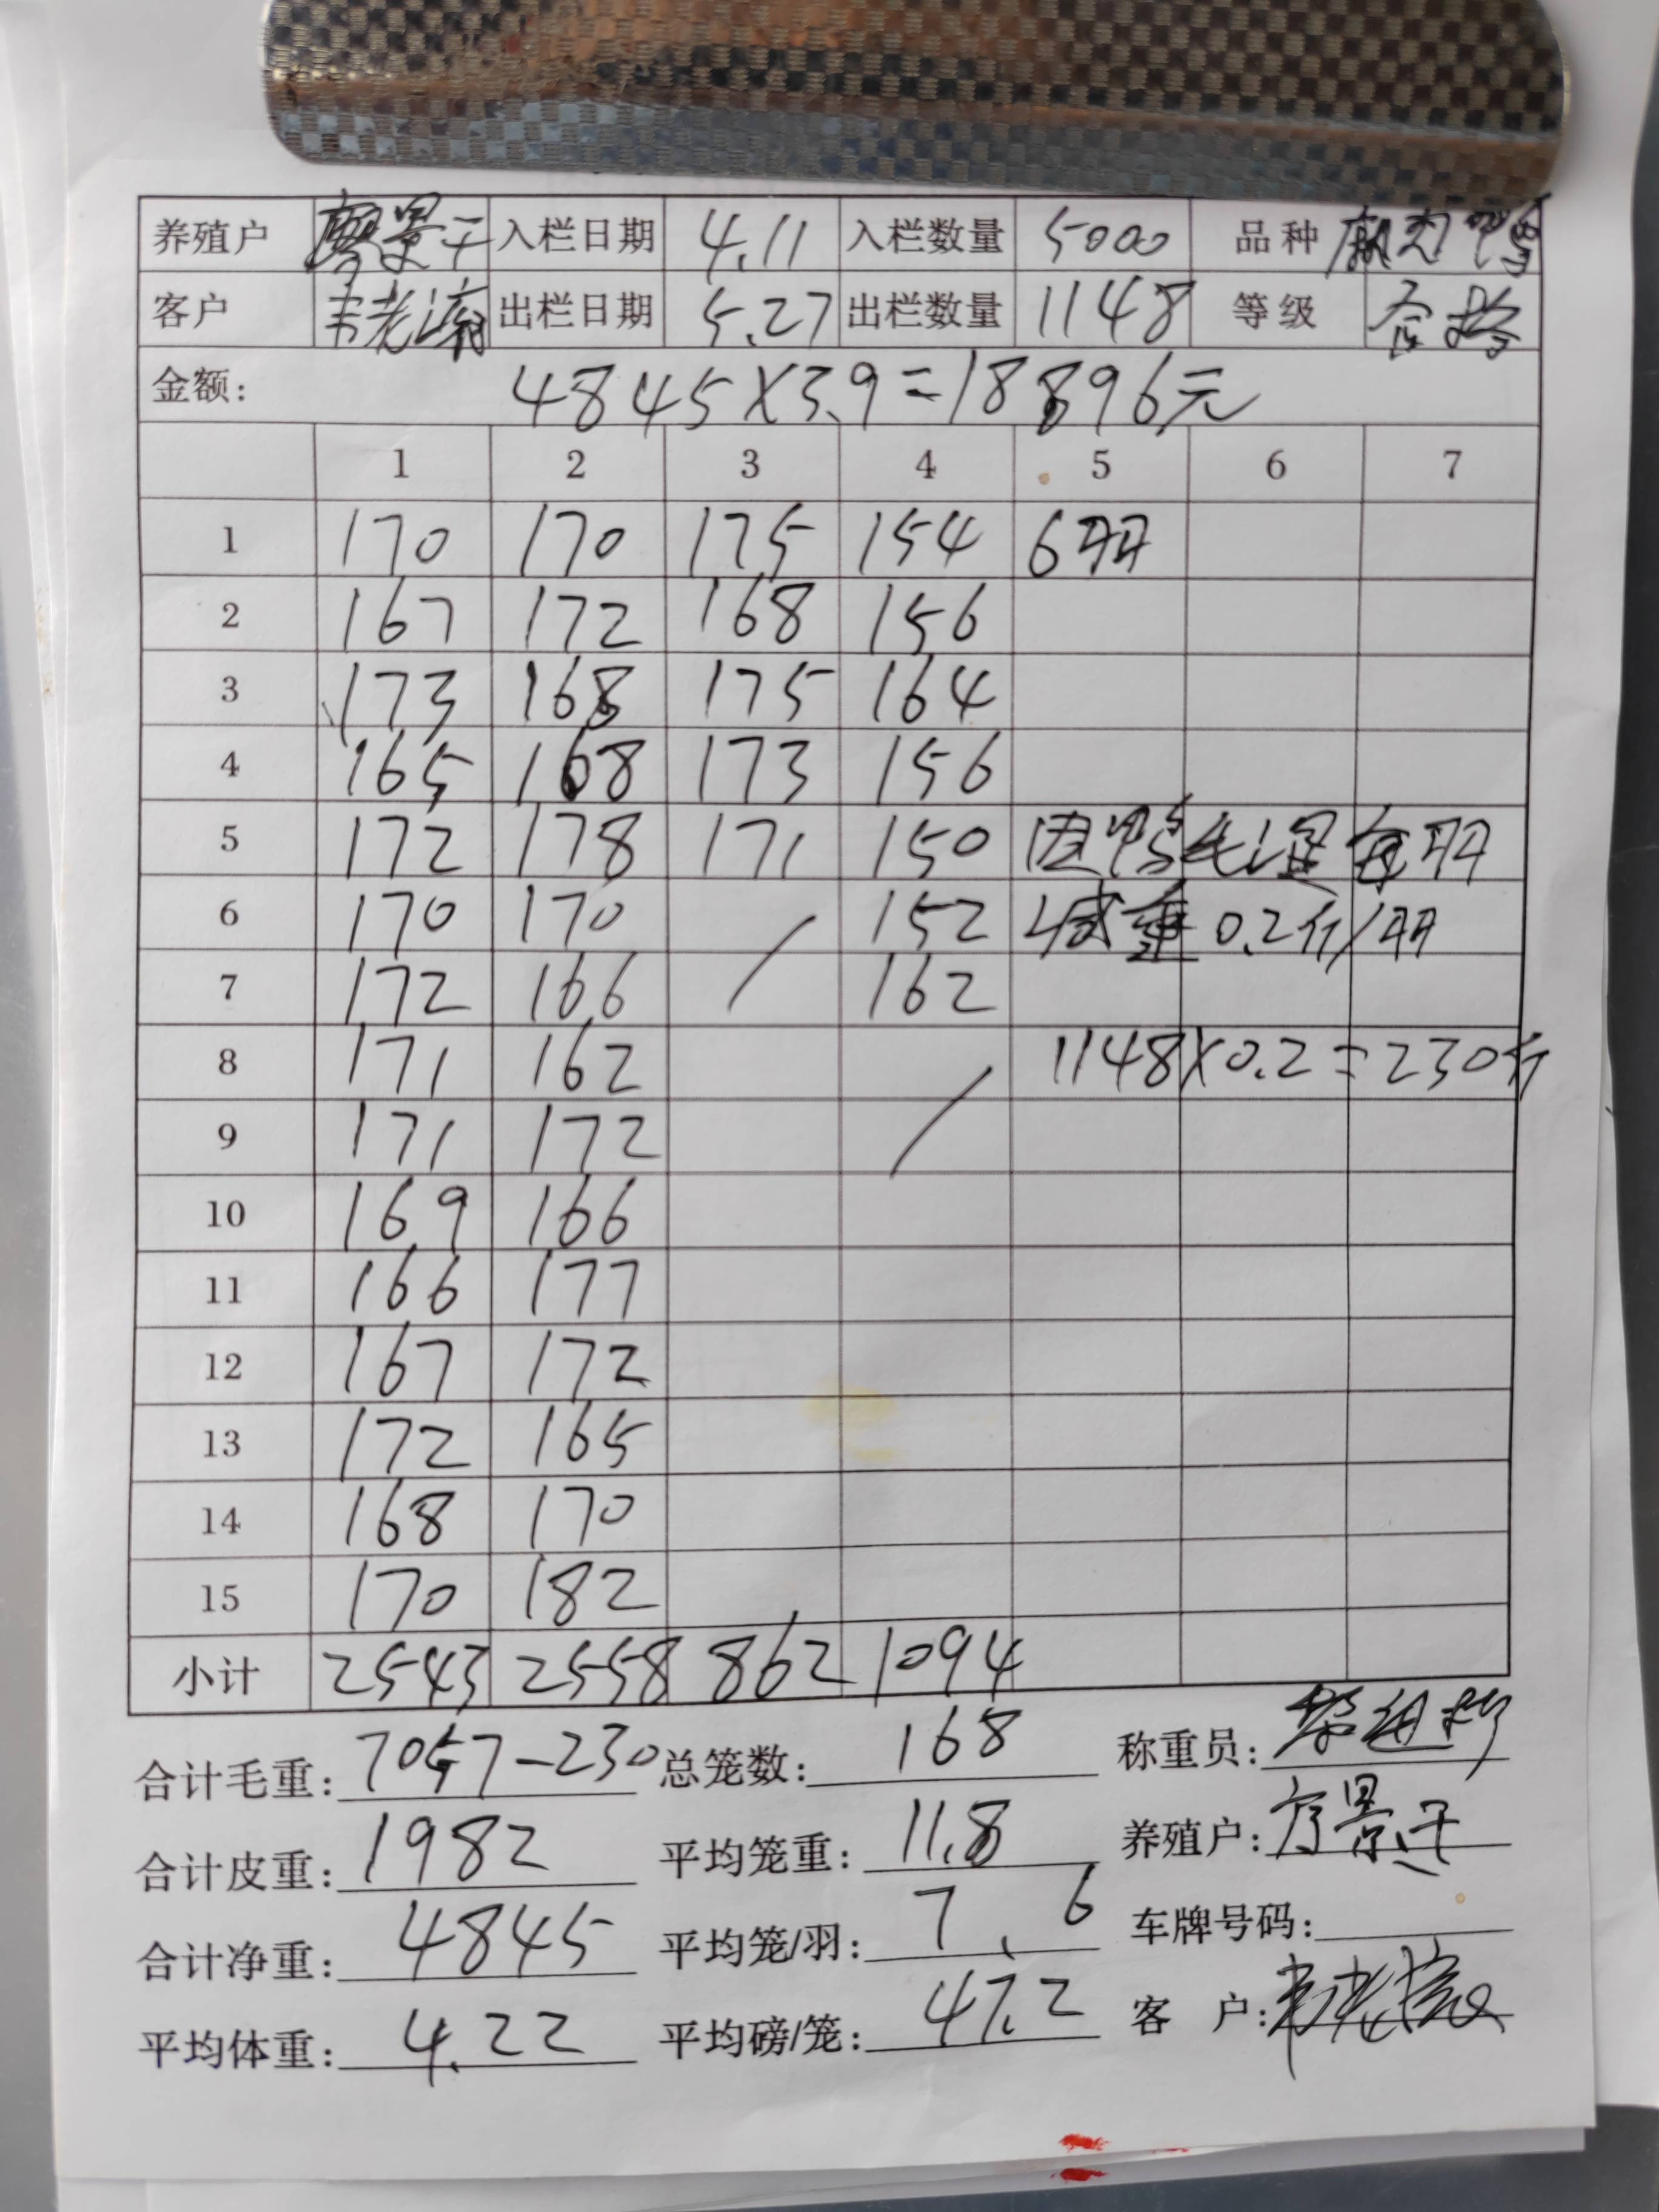 养殖户 廖景干 入栏日期 4.11 入栏数量 5000 品种 麻 鸭
客户 韦老 出栏日期 5.27 出栏数量 1148 等级 合格
金额: 4845×3.9=18896元
1 2 3 4 5 6 7
1 170 170 175 154 6羽
2 167 172 168 156
3 173 168 175 164
4 165 168 173 156
5 172 178 171 150 因鸭毛湿每羽
6 170 170 / 152 减重0.2斤/羽
7 172 166 162
8 171 162 / 1148×0.2=230斤
9 171 172
10 169 166
11 166 177
12 167 172
13 172 165
14 168 170
15 170 182
小计 2543 2558 862 1094
合计毛重: 7057-230 总笼数: 168 称重员:
合计皮重: 1982 平均笼重: 11.8 养殖户: 景干
合计净重: 4845 平均笼/羽: 7.6 车牌号码:
平均体重: 4.22 平均磅/笼: 47.2 客 户: 韦老